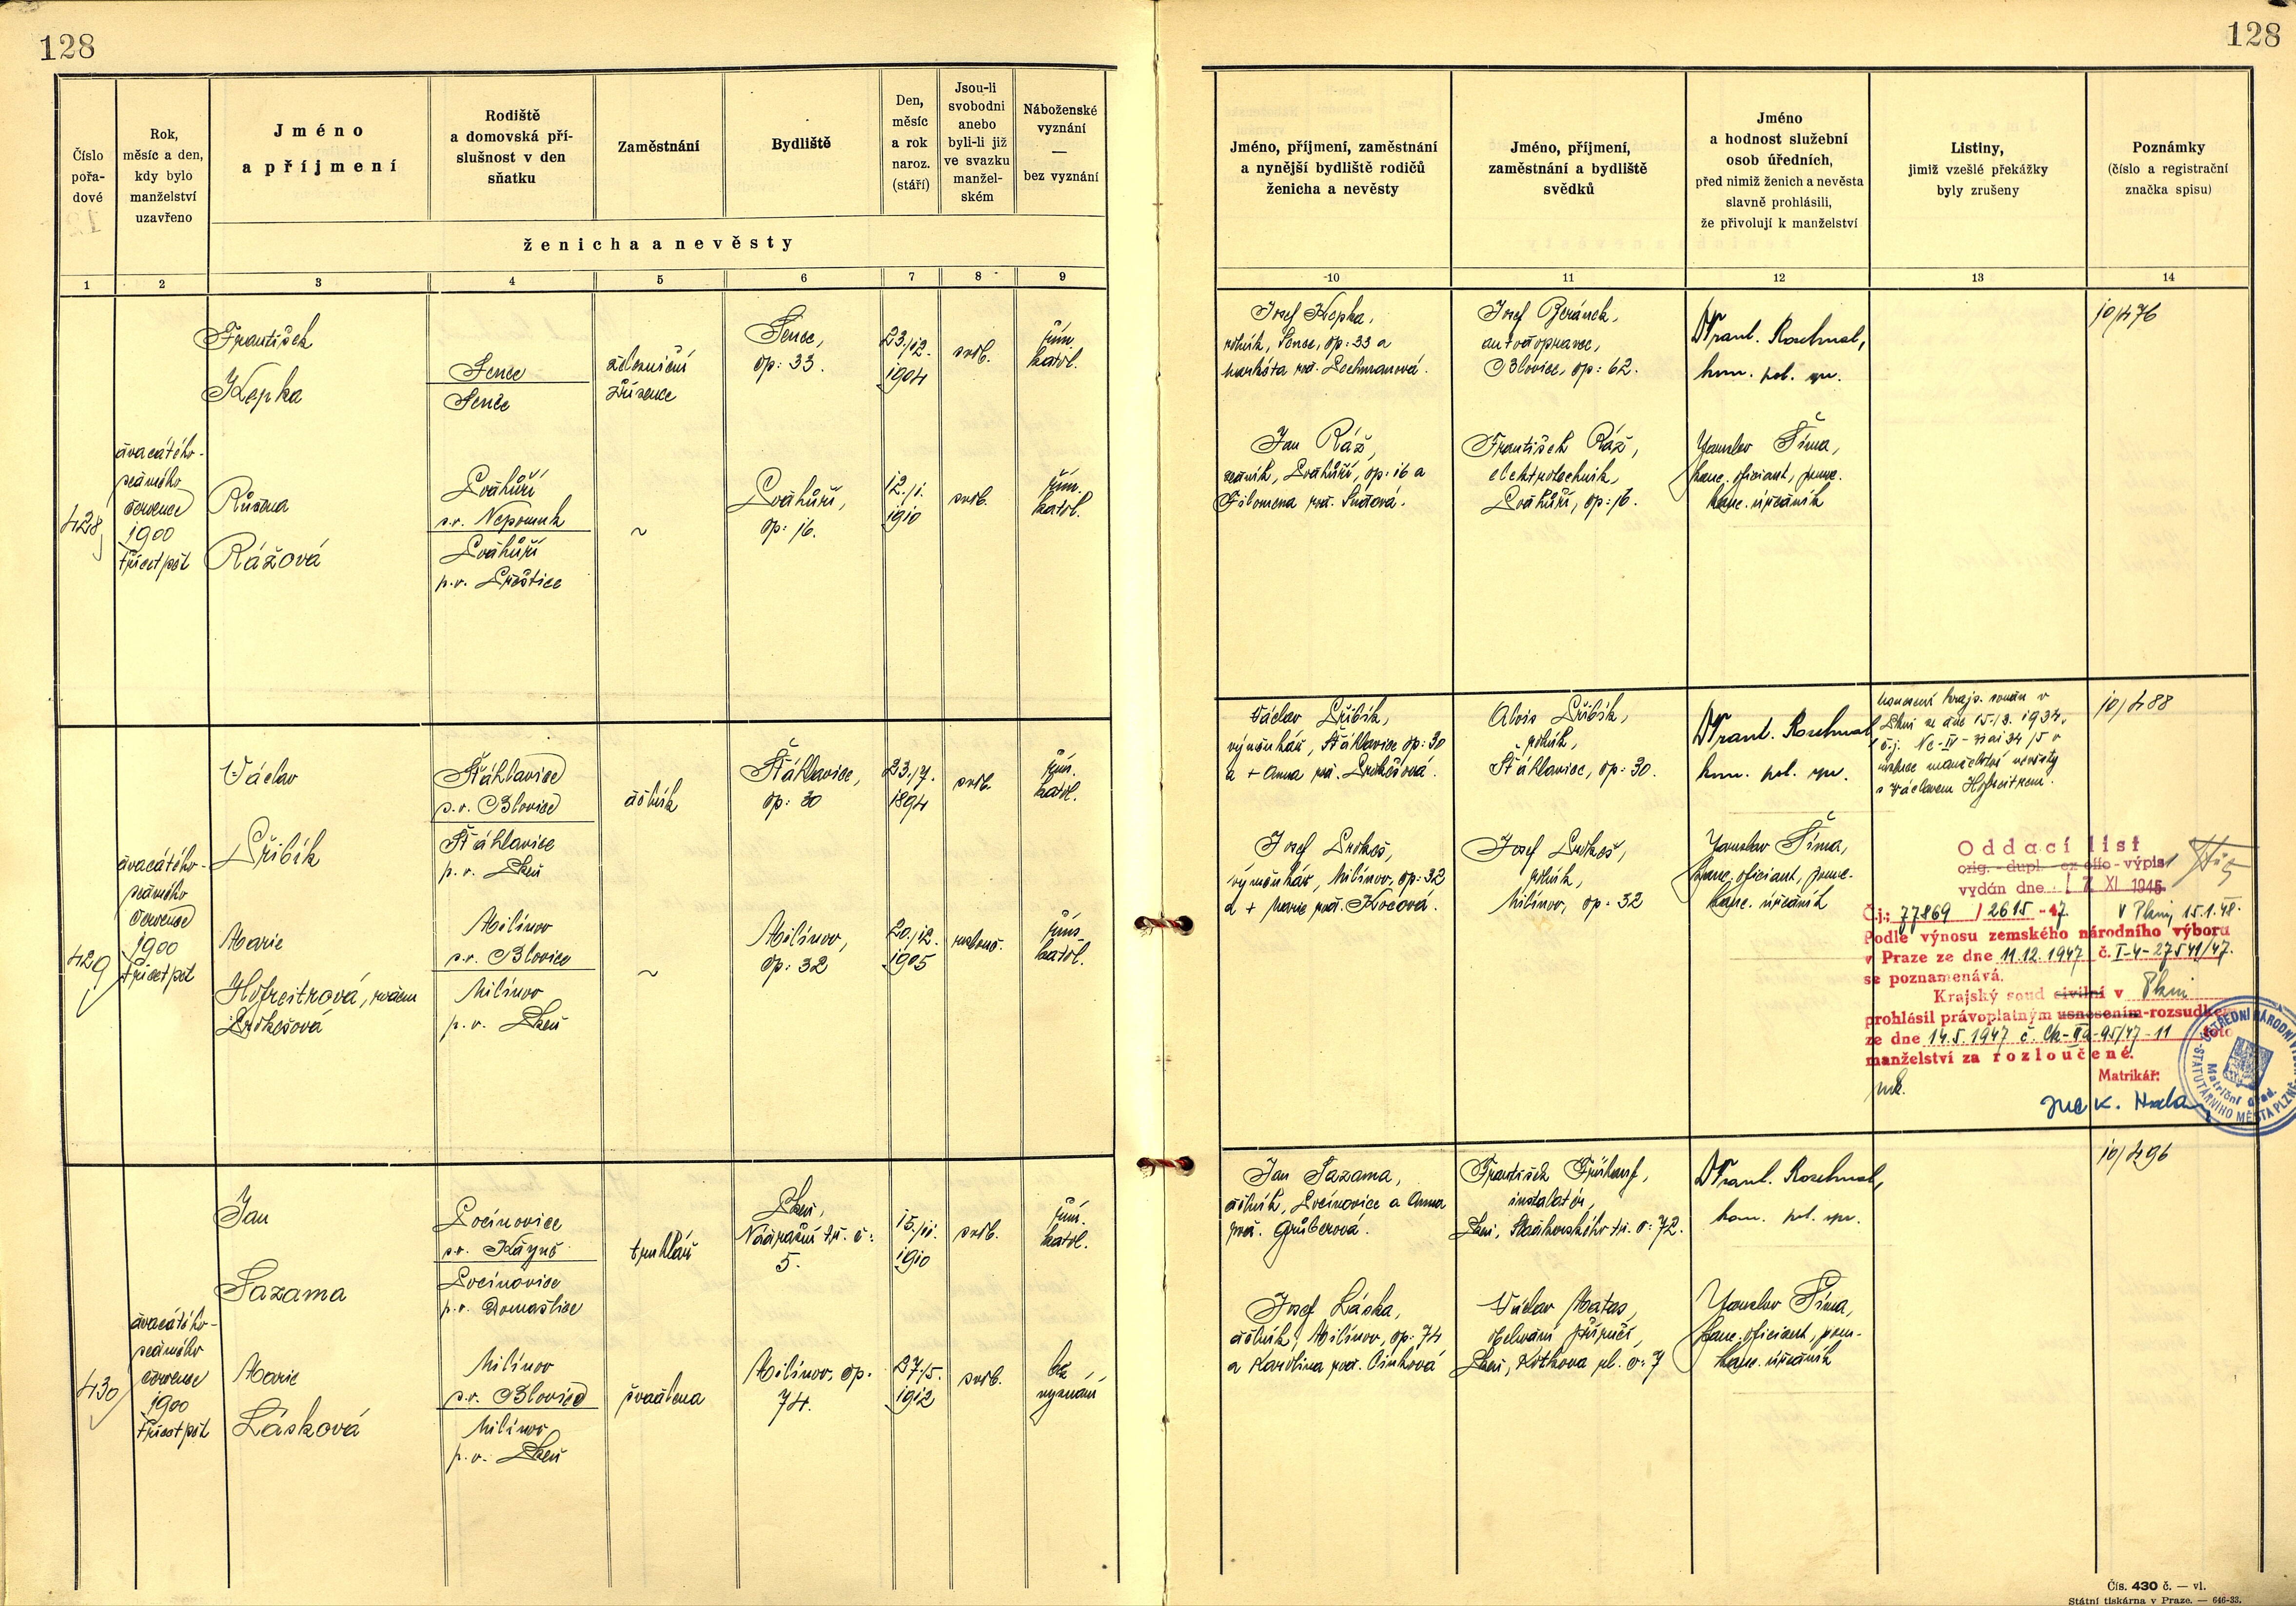 128
128
Číslo
pořa-
dové
Rok,
měsíc a den,
kdy bylo
manželství
uzavřeno
Jméno
a příjmení
Rodiště
a domovská pří-
slušnost v den
sňatku
Zaměstnání
Bydliště
Den,
měsíc
a rok
naroz.
(stáří)
Jsou-li
svobodni
anebo
byli-li již
ve svazku
manžel-
ském
Náboženské
vyznání
—
bez vyznání
ženicha a nevěsty
Jméno, příjmení, zaměstnání
a nynější bydliště rodičů
ženicha a nevěsty
Jméno, příjmení,
zaměstnání a bydliště
svědků
Jméno
a hodnost služební
osob úředních,
před nimiž ženich a nevěsta
slavně prohlásili,
že přivolují k manželství
Listiny,
jimiž vzešlé překážky
byly zrušeny
Poznámky
(číslo a registrační
značka spisu)
1 2 3 4 5 6 7 8 9 10 11 12 13 14
428
dvacátého-
sedmého
července
1900
třicet pět
František
Kepka
Senec
Senec
železniční
zřízenec
Senec,
čp: 33.
23./12.
1904
svob.
řím.
katol.
Růžena
Rážová
Zváhůří
p.v. Přeštice
s.o. Nepomuk
~
čp: 16.
12./1.
1910
svob.
řím.
katol.
Josef Kepka,
rolník, Senec, čp: 33 a
Markéta roz. Lochmanová.
Jan Ráž,
Filomena roz.
Josef Beránek,
autodopravce,
Blovice, čp: 62.
František Ráž,
elektrotechnik,
čp: 16.
kom. pol. spr.
Jaroslav Šíma,
kanc. oficiant, pom.
kanc. úředník
10/476
429
dvacátého-
sedmého
července
1900
třicet pět
Václav
Přibík
Šťáhlavice
s.o. Blovice
Šťáhlavice
p.o. Plzeň
dělník
Šťáhlavice,
čp: 30
23./7.
1894
svob.
řím.
katol.
Marie
Hofreitrová, rozen
Prokešová
Milínov
s.o. Blovice
Milínov
p.o. Plzeň
~
Milínov,
čp: 32
20./12.
1905
rozlouč.
řím.
katol.
Václav Přibík,
výměnkář, Šťáhlavice čp: 30
a + Anna roz. Prokešová.
Josef Prokeš,
výměnkář, Milínov, čp: 32
a + Marie roz. Kocová.
Alois Přibík,
rolník,
Šťáhlavice, čp: 30.
Josef Prokeš,
rolník,
Milínov, čp: 32
kom. pol. spr.
Jaroslav Šíma,
kanc. oficiant, pom.
kanc. úředník
usnesení krajs. soudu v
Plzni ze dne 15./3. 1934,
manželství nevěsty
s Václavem Hofreitrem.
10/488
Oddací list
orig. - dupl. - ex offo - výpis
vydán dne 17. XI. 1945
Č.j.: 77869 / 2615 -47. V Plzni 15.1.48.
Podle výnosu zemského národního výboru
v Praze ze dne 11.12.1947 č. I-4-27541/47.
se poznamenává.
Krajský soud civilní v Plzni
prohlásil právoplatným usnesením-rozsudkem
ze dne 14.5.1947 č. Ck-IIa-95/47-11 toto
manželství za rozloučené.
Matrikář:
ÚSTŘEDNÍ NÁRODNÍ
STATUTÁRNÍHO MĚSTA PLZNĚ
Matriční úřad.
430
dvacátého-
sedmého
července
1900
třicet pět
Jan
Sazama
Pocinovice
s.o. Kdyně
Pocinovice
p.o. Domažlice
truhlář
Plzeň,
Nádražní tř. č:
5.
15./11.
1910
svob.
řím.
katol.
Marie
Lásková
Milínov
s.o. Blovice
Milínov
p.o. Plzeň
švadlena
Milínov, čp.
74.
27./5.
1912
svob.
bez
vyznání
Jan Sazama,
dělník, Pocinovice a Anna
roz. Grüberová.
Josef Láska,
dělník, Milínov, čp: 74
a Karolina roz. Cinková
František
instalatér,
č: 72.
Václav Matas,
obchodní příručí,
Plzeň, Kotkova ul. č: 7
kom. pol. spr.
Jaroslav Šíma,
kanc. oficiant, pom.
kanc. úředník
10/496
Čís. 430 č. — vl.
Státní tiskárna v Praze. — 646-33.